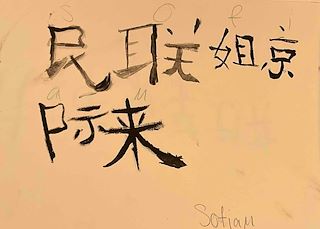 S o f i
民联姐京
a n
际来
Sofian